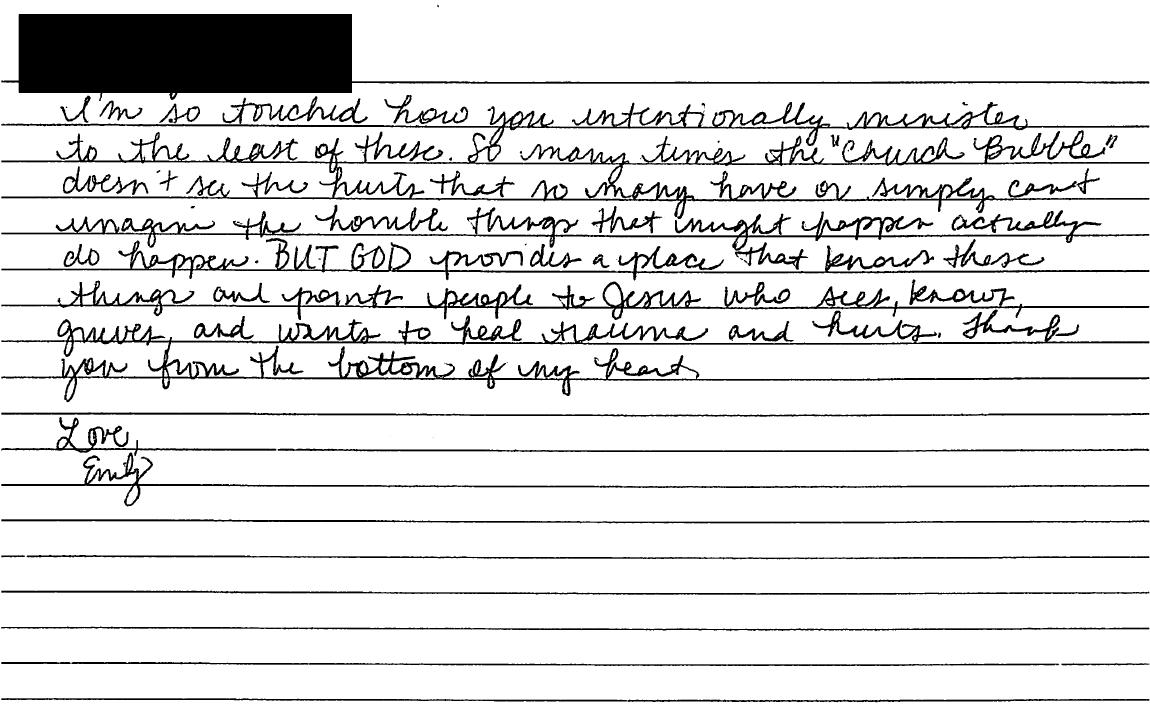 I'm so touched how you intentionally minister
to the least of these. So many times the "Church Bubble"
doesn't see the hurts that so many have or simply can't
imagine the horrible things that might happen actually
do happen. BUT GOD provides a place that knows these
things and points people to Jesus who sees, knows,
grieves, and wants to heal trauma and hurts. Thank
you from the bottom of my heart.
Love,
Emily